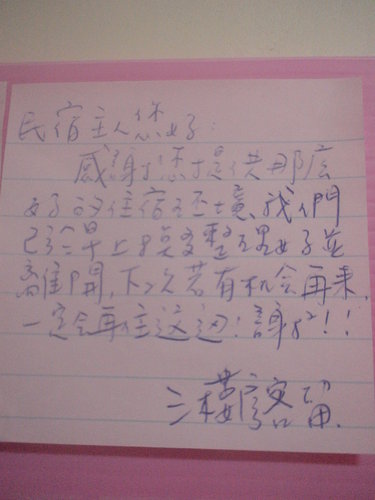 民宿主人您好:
感謝您提供那麼
好的住宿环境,我們
已經早上把房間整理好並
離開,下次若有机会再來,
一定会再住這边!謝謝!!
三樓房客留.